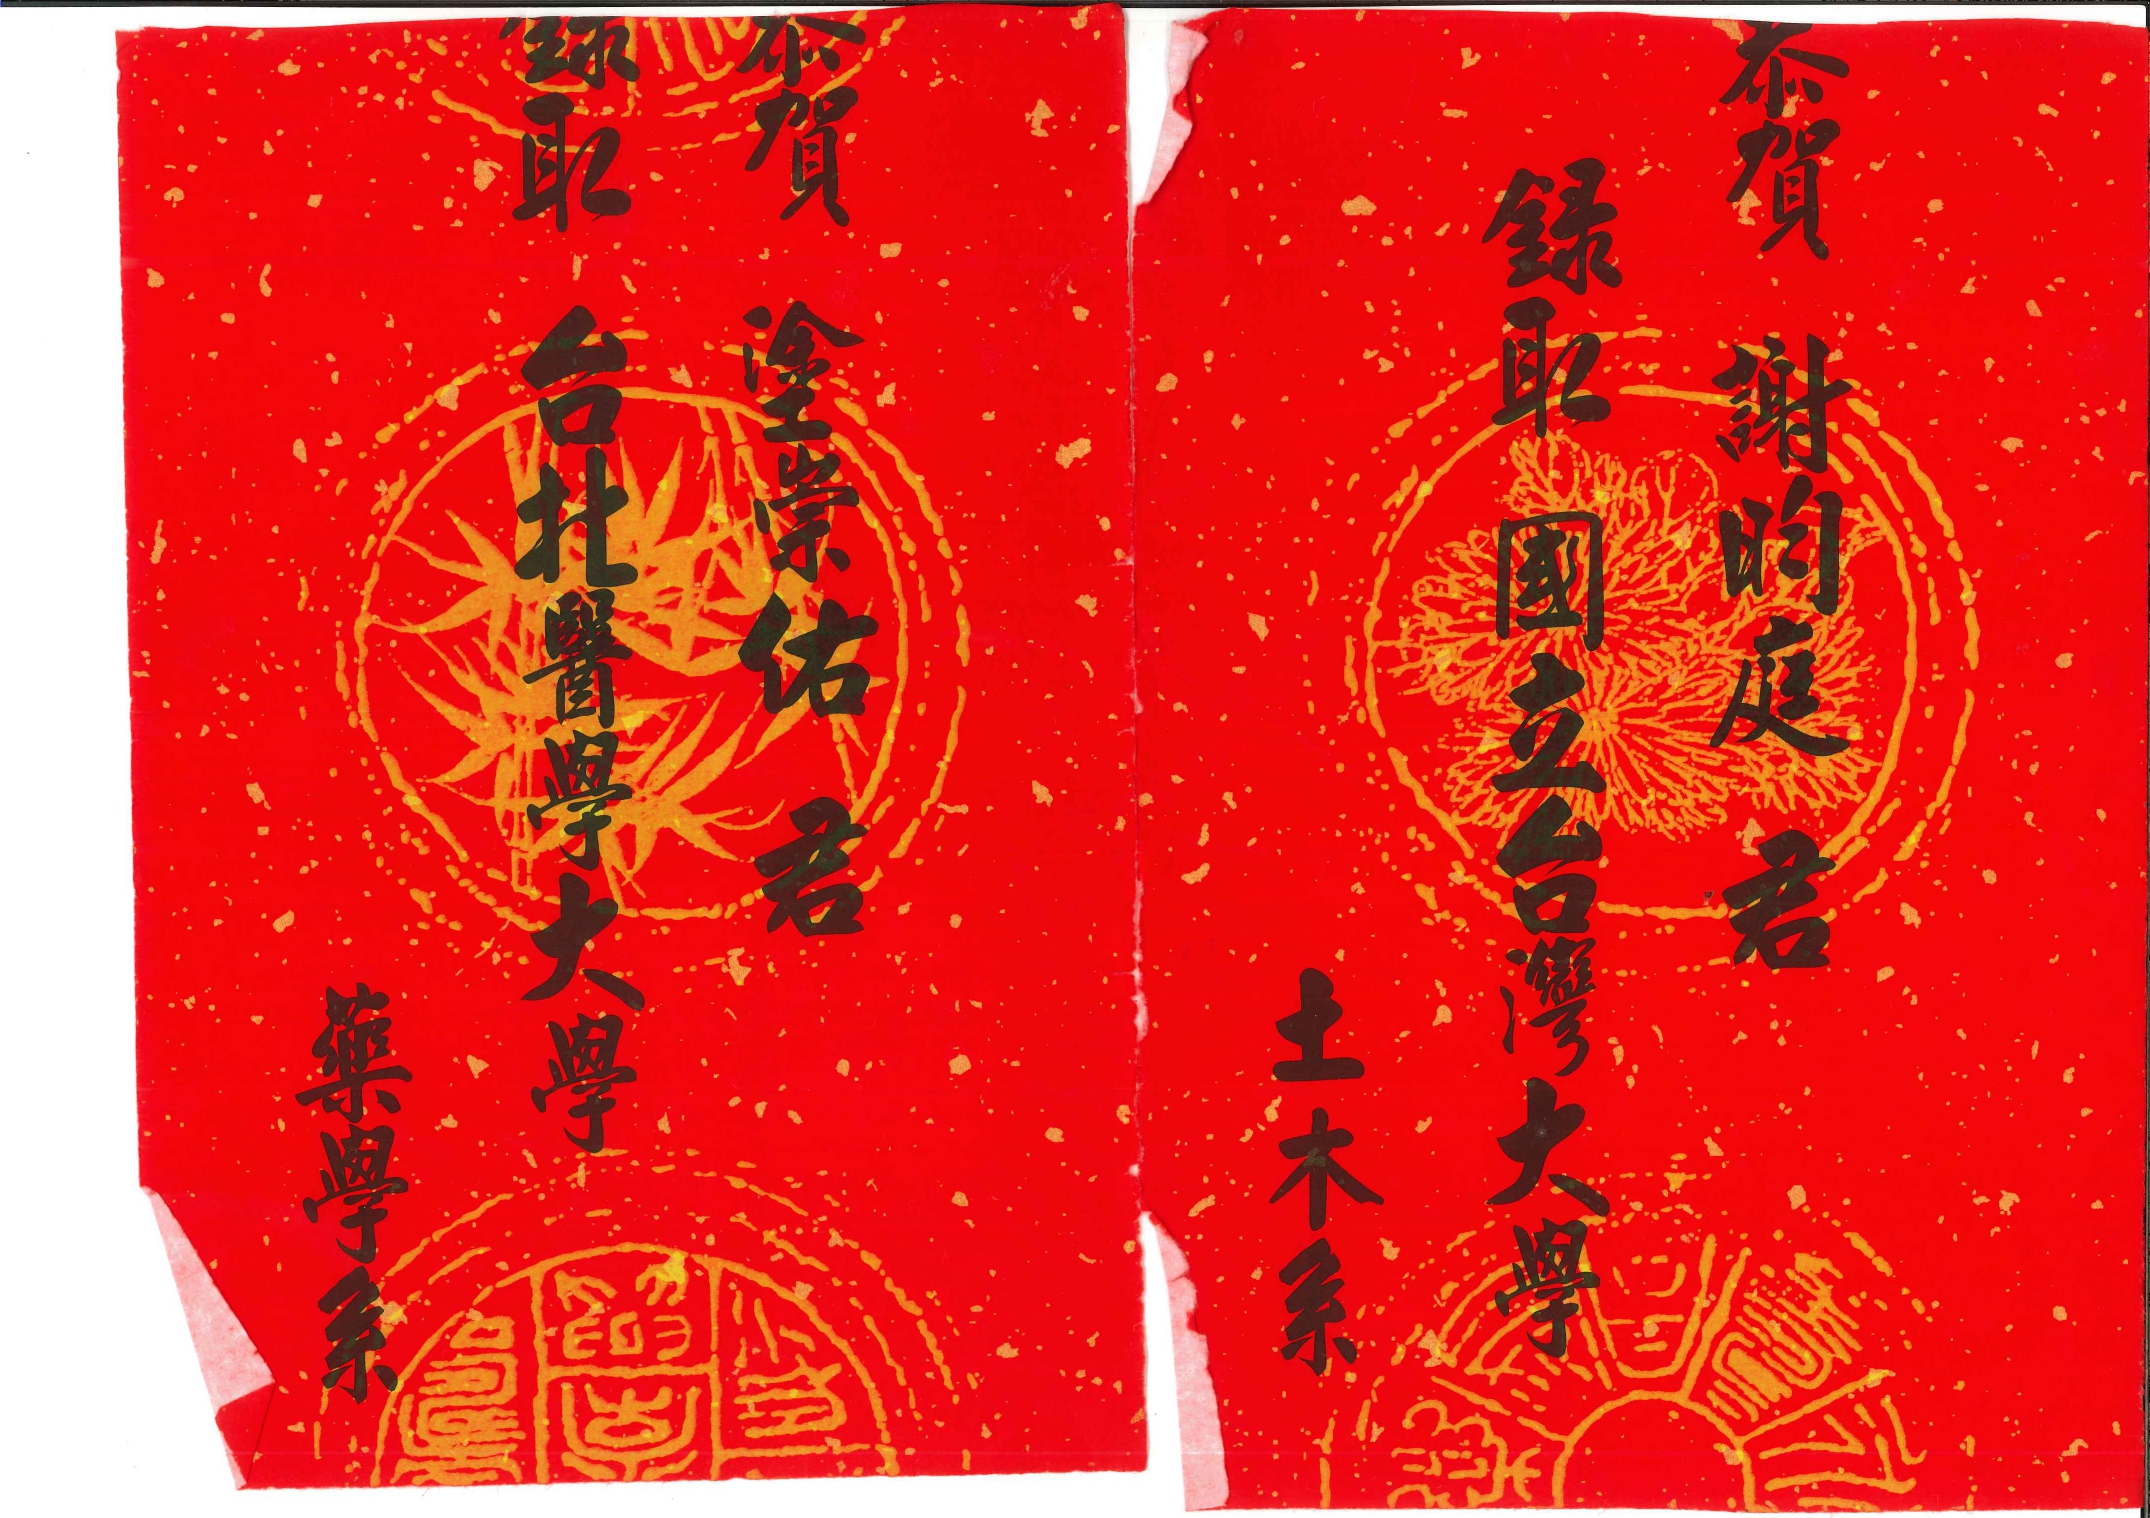 恭賀 謝昀庭 君
録取 國立台灣大學
土木系
恭賀 塗崇佑 君
録取 台北醫學大學
藥學系